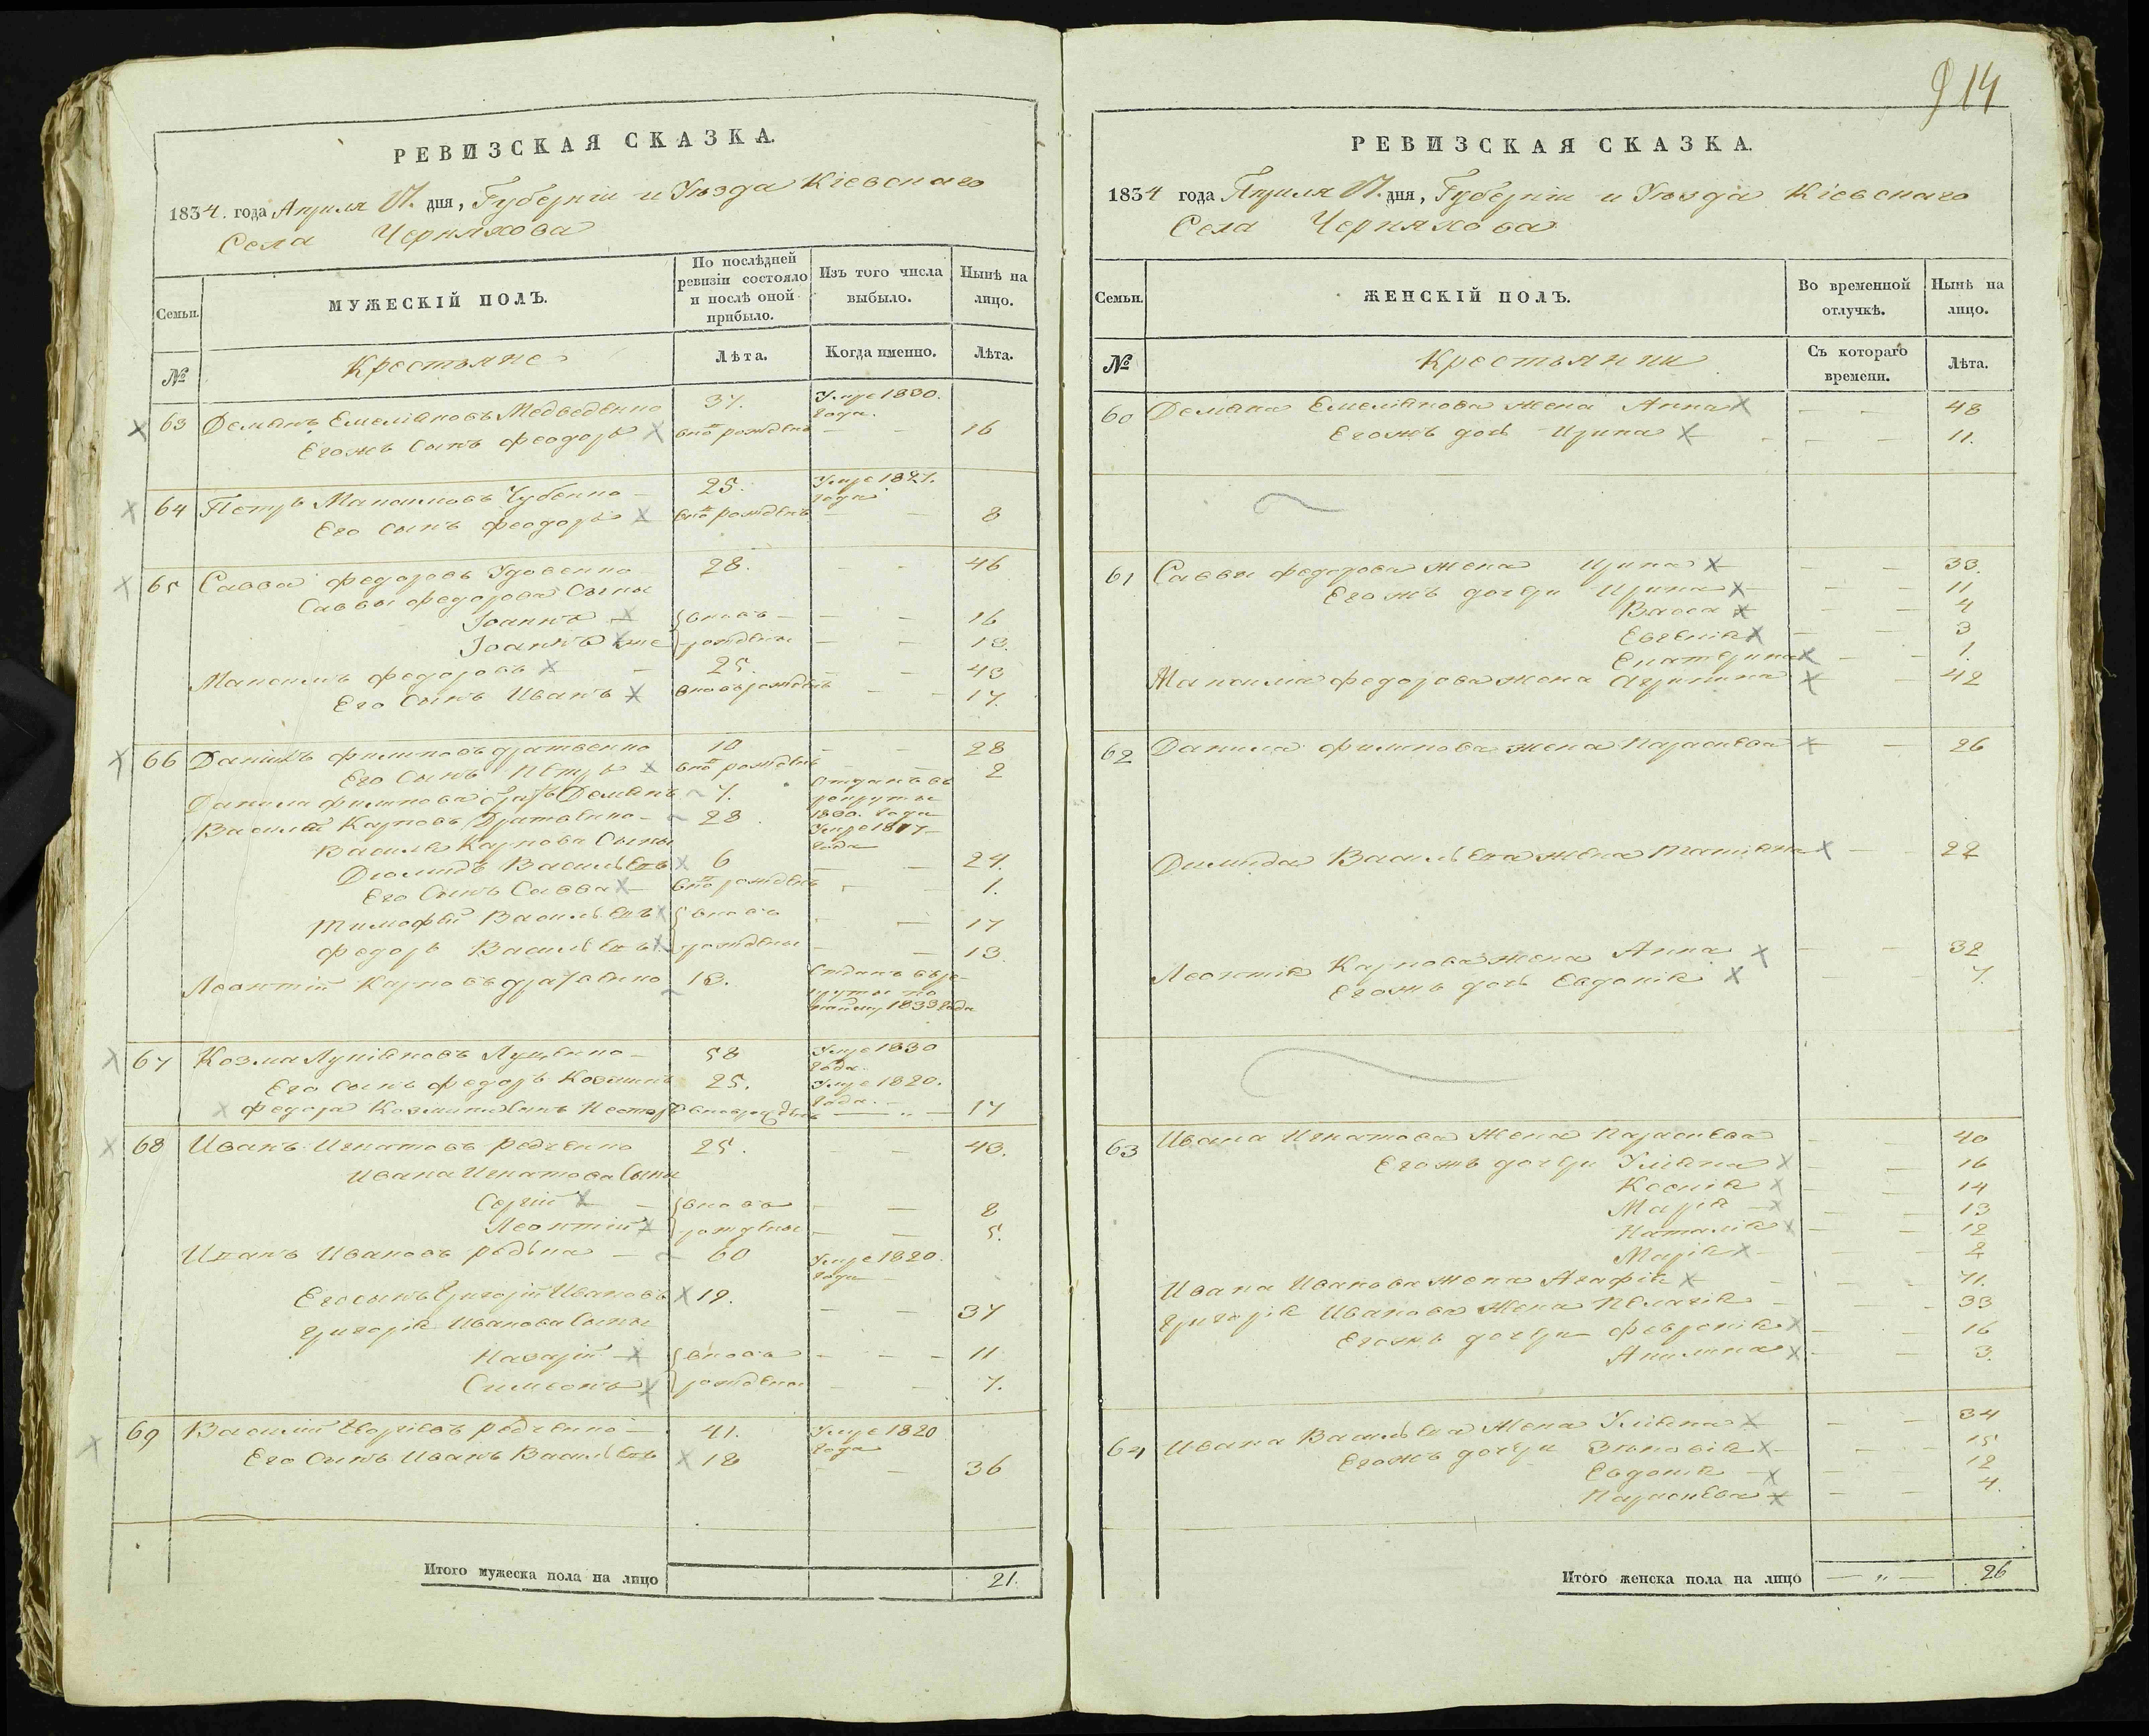 РЕВИЗСКАЯ СКАЗКА.
1834. года Апреля 17. дня, Губернiи и Уѣзда Кiевскаго
Села Черняхова
Семьи.
МУЖЕСКІЙ ПОЛЪ.
По послѣдней ревизіи состояло и послѣ оной прибыло.
Изъ того числа выбыло.
Нынѣ на лицо.
№
Крестьяне
Лѣта.
Когда именно.
Лѣта.
63 Демянъ Емелiановъ Медведенко 37. Умре 1830. года.
Егожъ сынъ Феодоръ вновь рожденъ — — 16
64 Петръ Максимовъ Чубенко — 25. Умре 1827. года
Его сынъ Феодоръ вновь рожденъ — — 8
65 Савва Федоровъ Удовенко 28. — — 46
Саввы Федорова сыны
Іоаннъ вновь — — 16
Іоаннъ же рождены — — 13.
Максимъ Федоровъ — 25. — — 43
Его сынъ Иванъ вновь рожденъ — — 17.
66 Данилъ Филиповъ 10 — 28
Его сынъ Петръ вновь рожденъ — 2
Данила Филипова братъ Демянъ 7. Отданъ въ рекруты
Василiй Карповъ — 28. Умре 1817 года
Василiя Карпова сыны
Дiомидъ Васильевъ 6 — — 24.
Его сынъ Савва — вновь рожденъ — — 1.
Тимофѣй Васильевъ вновь — — 17
Федоръ Васильевъ рождены — — 13.
Леонтiй Карповъ 13. Отданъ въ рекруты 1833 года
67 Козма Лукiановъ Луценко — 58 Умре 1830 года.
Его сынъ Федоръ Козминъ 25. Умре 1820. года. —
Федора Козмина сынъ Несторъ вновь рожденъ — „ — 17
68 Иванъ Игнатовъ Редченко 25. — — 43.
Ивана Игнатова сыны
Сергiй — вновь — — 8
Леонтiй рождены — — 5.
Иванъ Ивановъ — 60 Умре 1820. года —
Его сынъ Григорiй Ивановъ 19. — — 37
Григорiя Иванова сыны
Назарiй — вновь — — — 11
Симеонъ рождены — — 7.
69 Василiй Редченко — 41. Умре 1820 года
Его сынъ Иванъ Васильевъ 18 — — 36
Итого мужеска пола на лицо 21.
14
РЕВИЗСКАЯ СКАЗКА.
1834 года Апреля 17. дня, Губернiи и Уѣзда Кiевскаго
Села Черняхова
Семьи.
ЖЕНСКІЙ ПОЛЪ.
Во временной отлучкѣ.
Нынѣ на лицо.
№
Крестьянки
Съ котораго времени.
Лѣта.
60 Демяна Емелiанова жена Анна — — 48
Егожъ дочь Ирина — — 11.
61 Саввы Федорова жена Ирина — — 33.
Егожъ дочери Ирина — — 11
Васса — — 4
Евгенiя — — 3
Екатерина — — 1.
Максима Федорова жена Агрипина — 42
62 Данила Филипова жена Параскева — 26
Дiмида Васильева жена Татiяна — — 22
Леонтiя Карпова жена Анна — — 32
Егожъ дочь Евдокiя — — 7.
63 Ивана Игнатова жена Параскева — — 40
Егожъ дочери Улiяна — — 16
Ксенiя — — 14
Марiя — — — 13
Наталiя — — 12
Марiя — — — 2
Ивана Иванова жена Агафiя — — — 71.
Григорiя Иванова жена Пелагiя — — — 33
Егожъ дочери Февронiя — — 16
Акилина — — 3.
64 Ивана Васильева жена Улiяна — — 34
Егожъ дочери Зѣновiя — — 15
Евдокiя — — — 12
Параскева — — 4.
Итого женска пола на лицо — „ — 26